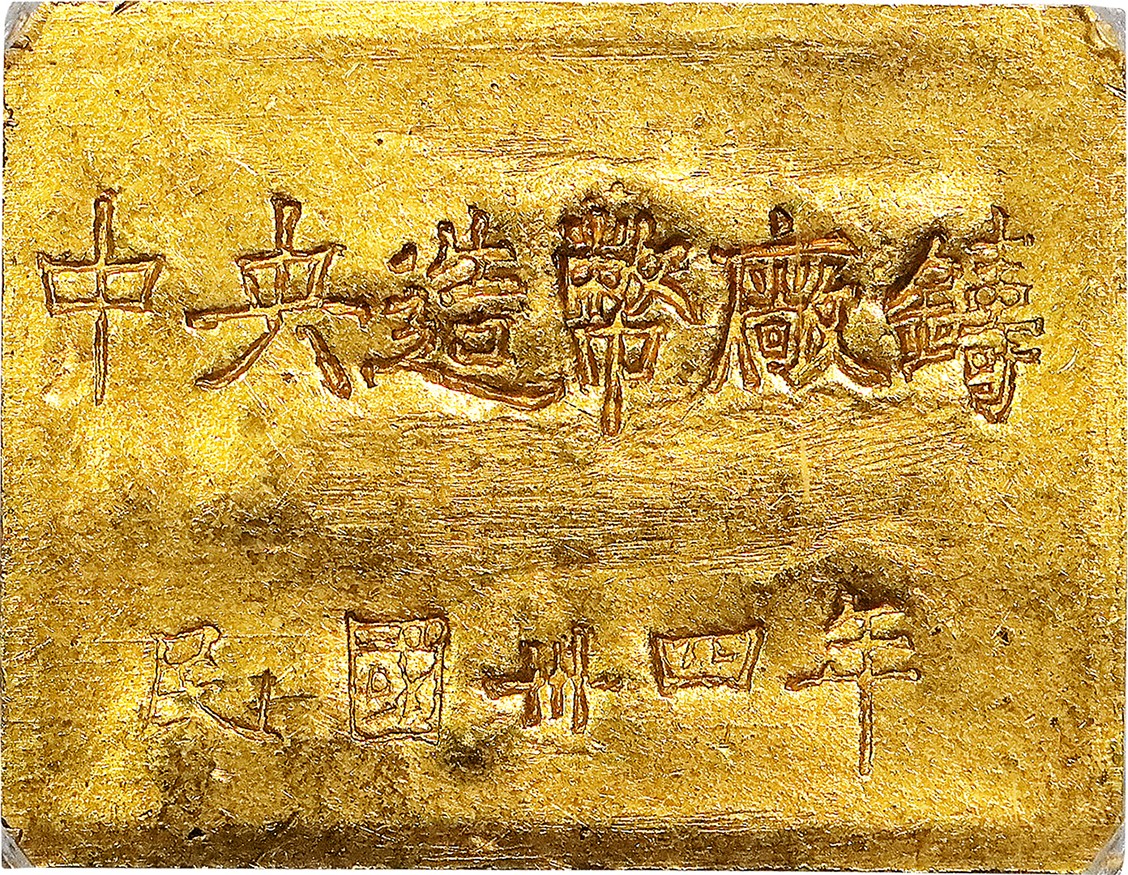 中央造幣廠鑄
民國卅四年